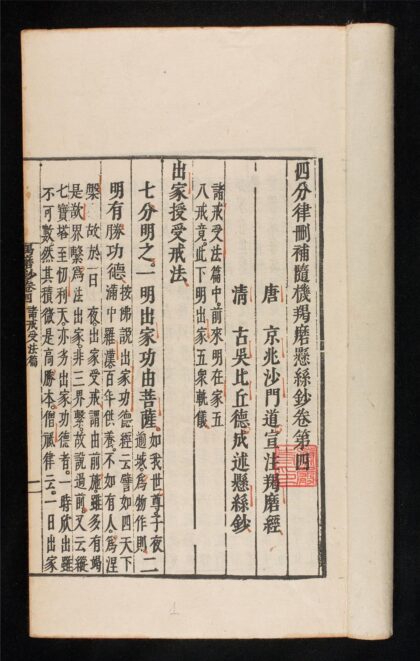 四分律刪補隨機羯磨懸絲鈔卷第四
唐 京兆沙門道宣注羯磨經
清 古吳比丘德成述懸絲鈔
諸戒受法篇中前來明在家五
八戒竟此下明出家五眾軌儀
出家授受戒法
七分明之一明出家功由菩薩如我世尊子夜
逾城為物作則二
明有勝功德按佛說出家功德經云譬如四天下
滿中羅漢百年供養不如有人為涅
槃故於一日一夜出家受戒謂由前施雖多有竭
是故界繫為法出家非三界繫故說過前又云縱
七寶塔至忉利天亦劣出家功德者一時欣出雖
不可數然其積微是高勝本僧祇律云一日出家
羯磨鈔卷四 諸戒受法篇 一